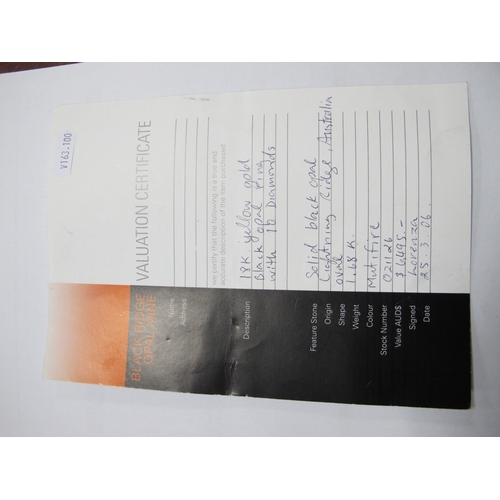 V163.100
BLACK RIDGE
OPAL MINE
VALUATION CERTIFICATE
Name
Address
we certify that the following is a true and
accurate description of the item purchased
Description 18K yellow gold
Black opal ring
with 16 Diamonds
Feature Stone Solid black opal
Origin Lightning Ridge, Australia
Shape oval
Weight 1.68 K.
Colour Mutifire
Stock Number 021126
Value AUD$ $6,495.-
Signed Lorenza
Date 25.3.06.